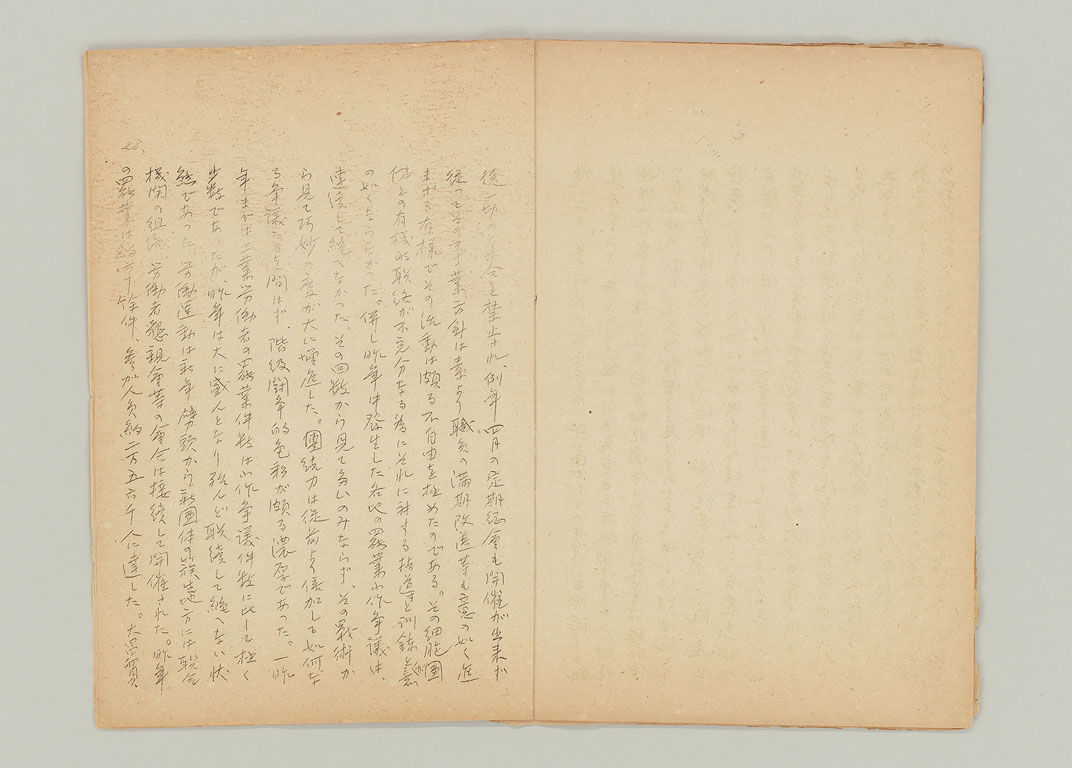 後一切の集会を禁止され、例年四月の定期総會も開催が出来ず
従つてその事業方針は素より職員の満期改選等も意の如く進
まざる有様でその活動は頗る不自由を極めたのである。その細胞團
体との有機的联絡が不充分なる為にそれに対する指導と訓錬も意
の如くならなかつた。併し昨年中発生した各地の罷業小作争議は、
連續して絶へなかつた。その回数から見て多いのみならず、その戰術か
ら見て巧妙の度が大に増進した。團結力は従前より倍加しても如何な
る争議たるを問はず、階級闘争的色彩が頗る濃厚であつた。一昨
年までは工業労働者の罷業件数は小作争議件数に比して極く
少数であつたが、昨年は大に盛んとなり殆んど联續して絶へない状
態であつた。労働運動は新年劈頭から新團体の簇生地方には联合
機関の組織労働者懇親會等の集会は接續して開催された。昨年
の罷業は約 十餘件、参加人員約二万五六千人に達した。大
28.